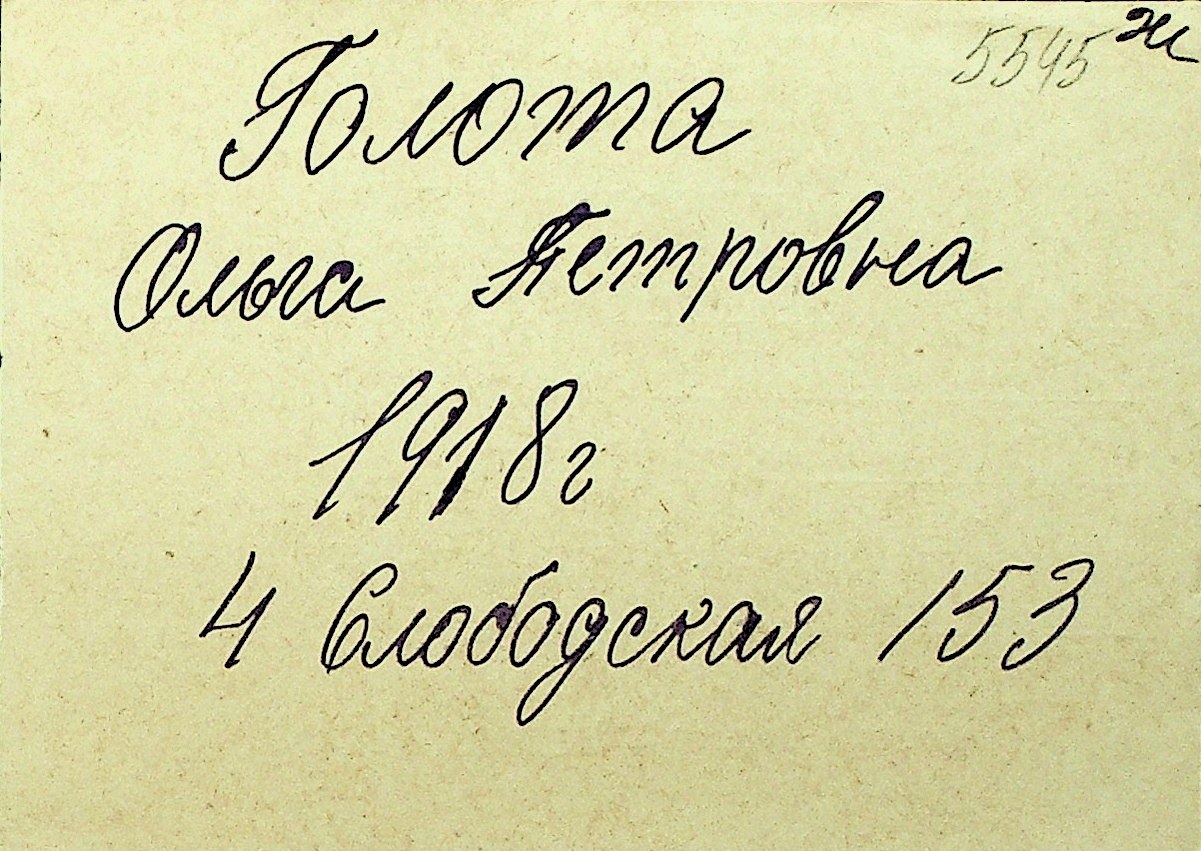 5545 Ж
Голота
Ольга Петровна
1918г
4 Слободская 153